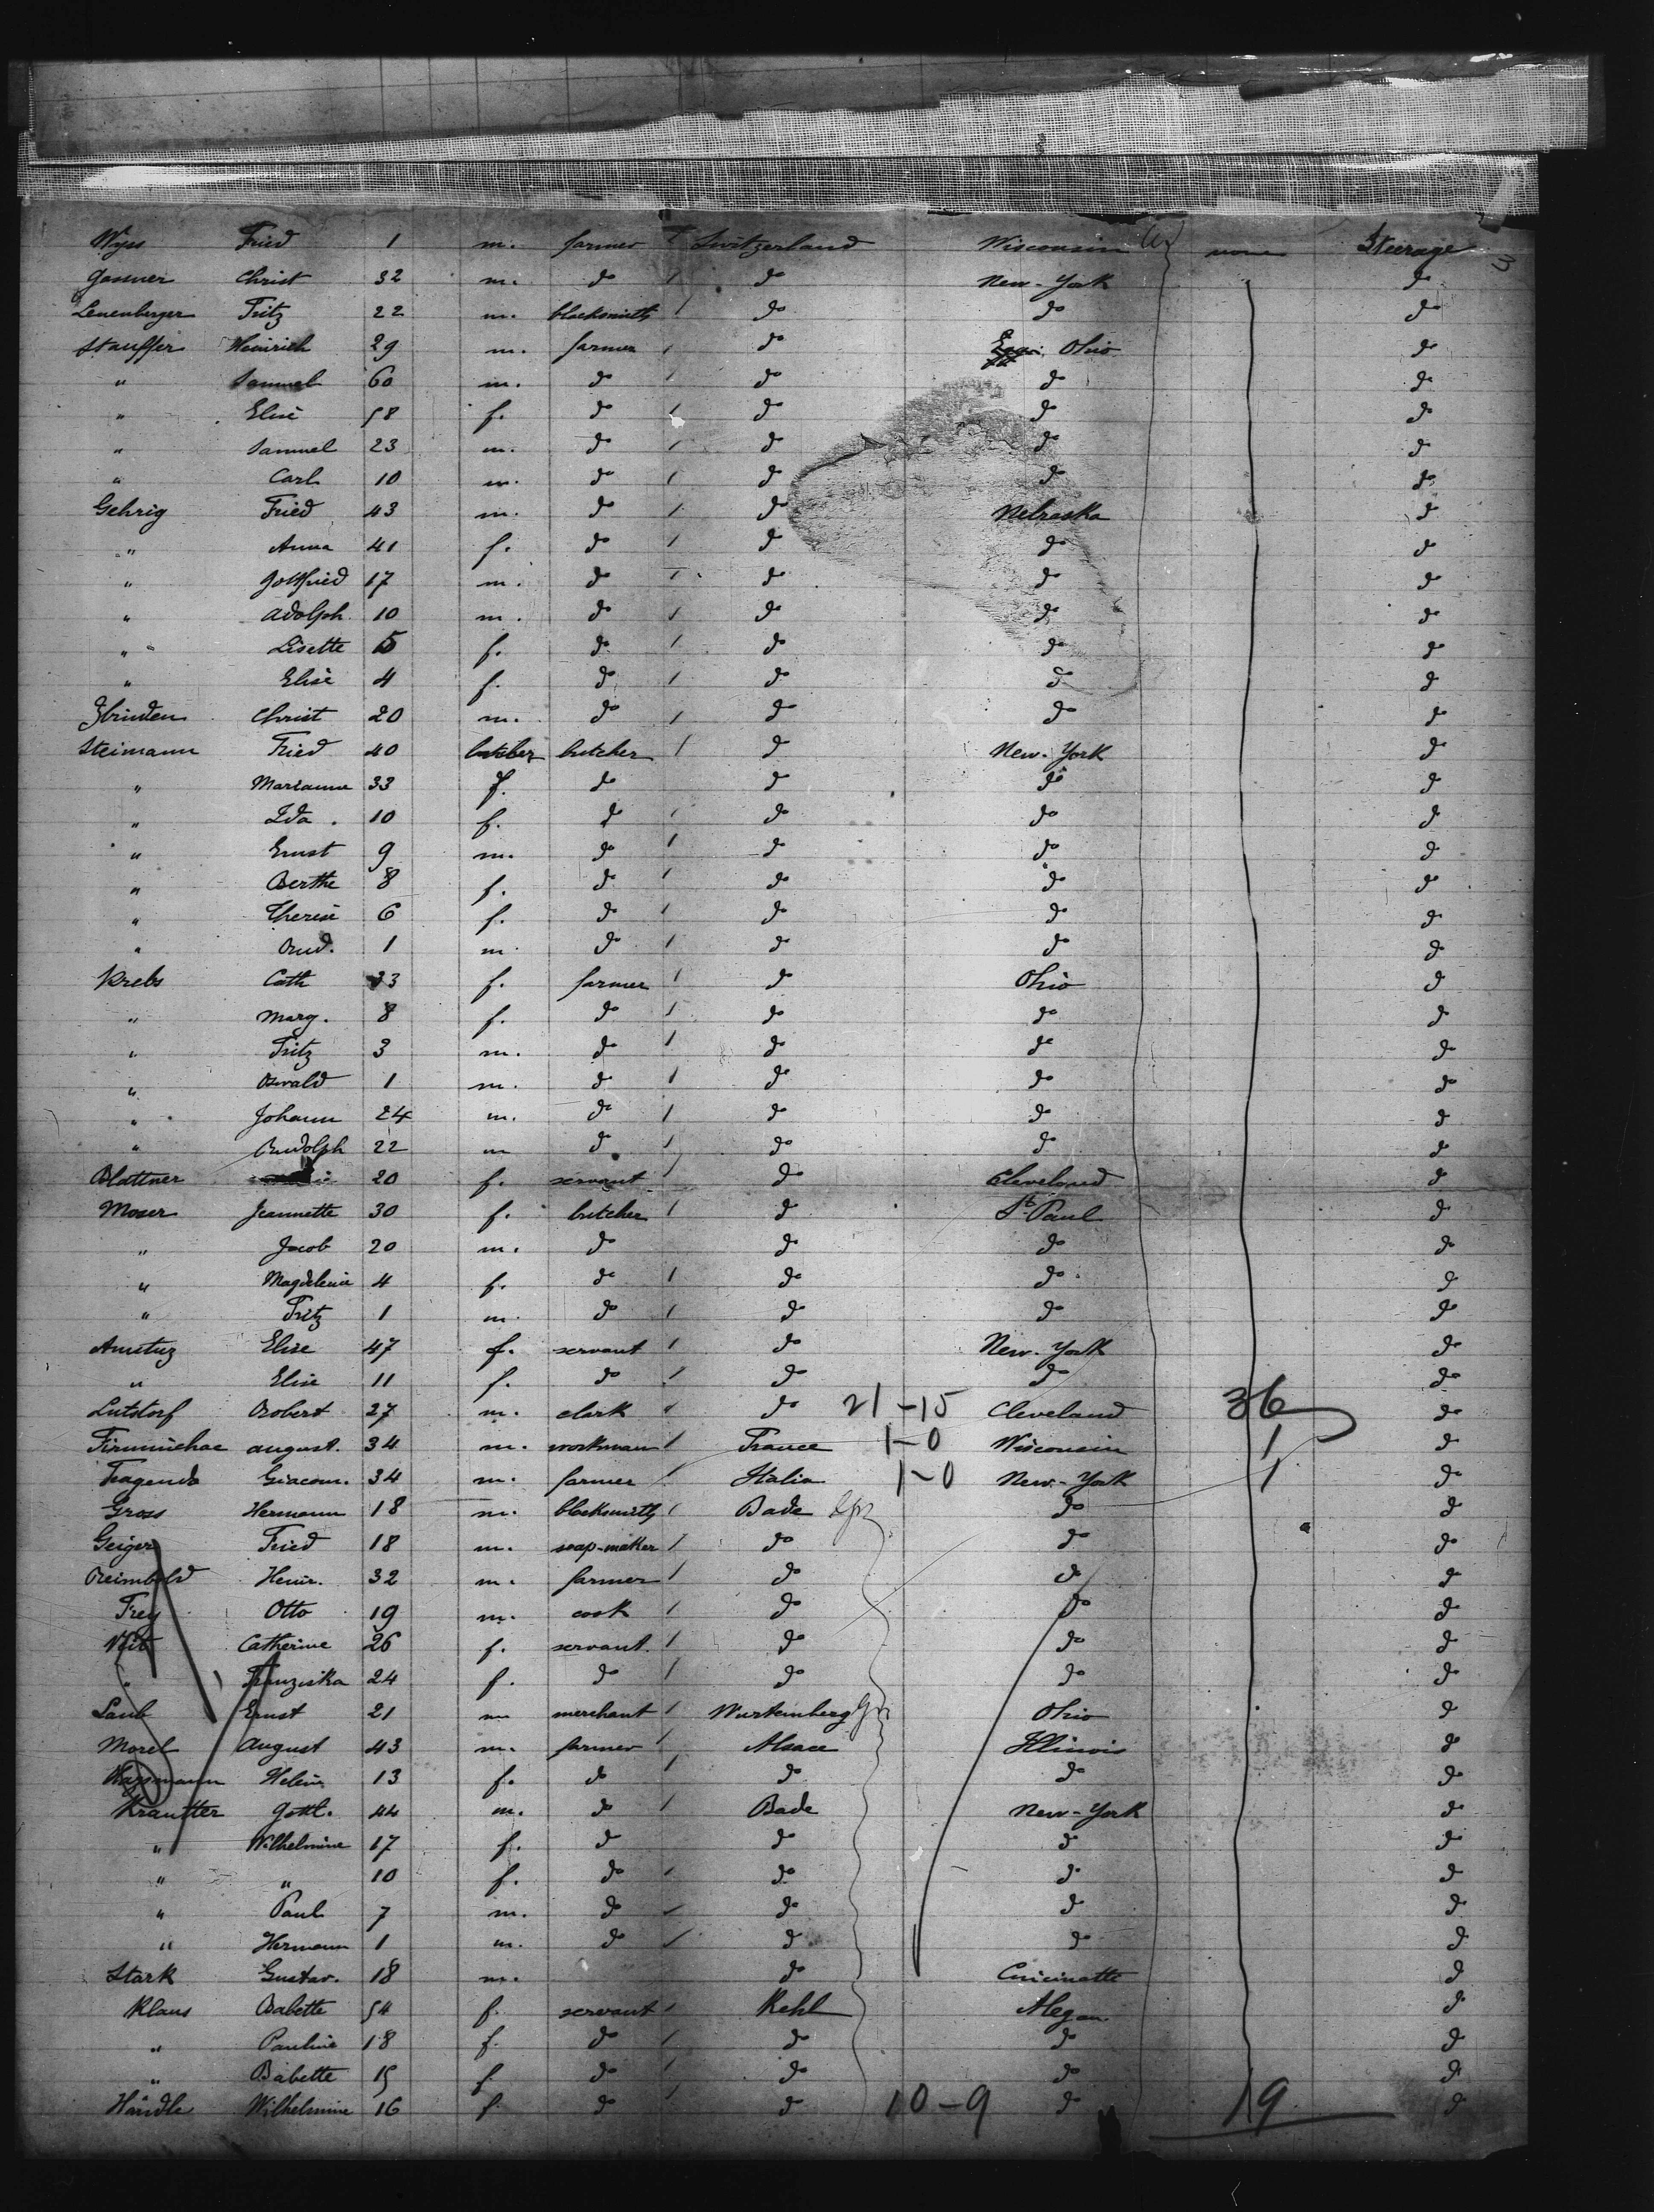 Wyss Fried 1 m. farmer Switzerland Wisconsin none Steerage
Gasser Christ 32 m. do do New-York do
Leuenberger Fritz 22 m. blacksmith do do do
Stauffer Heinrich 29 m. farmer do Ohio do
" Samuel 60 m. do do do do
" Elise 58 f. do do do do
" Samuel 23 m. do do do do
" Carl 10 m. do do do do
Gehrig Fried 43 m. do do Nebraska do
" Anna 41 f. do do do do
" Gottfried 17 m. do do do do
" Adolph. 10 m. do do do do
" Lisette 5 f. do do do do
" Elise 4 f. do do do do
Zbinden Christ 20 m. do do do do
Steimann Fried 40 butcher butcher do New-York do
" Marianne 33 f. do do do do
" Ida. 10 f. do do do do
" Ernst 9 m. do do do do
" Berthe 8 f. do do do do
" Therese 6 f. do do do do
" Rud. 1 m do do do do
Krebs Cath 33 f. farmer do Ohio do
" Marg. 8 f. do do do do
" Fritz 3 m. do do do do
" Oswald 1 m. do do do do
" Johann 24 m. do do do do
" Rudolph 22 m do do do do
Blattner 20 f. servant do Cleveland do
Moser Jeannette 30 f. butcher do St. Paul do
" Jacob 20 m. do do do do
" Magdelene 4 f. do do do do
" Fritz 1 m. do do do do
Amstuz Elise 47 f. servant do New-York do
" Elise 11 f. do do do do
Lutstorf Robert 27 m. clark do 21-15 Cleveland 36 do
august. 34 m. workman France 1-0 Wisconsin 1 do
Giacom. 34 m. farmer Italia 1-0 New-York 1 do
Gross Hermann 18 m. blacksmith Bade do do
Geiger Fried 18 m. soap-maker do do do
Reimbold Heinr. 32 m. farmer do do do
Frey Otto 19 m. cook do do do
Veit Catherine 26 f. servant. do do do
" Franziska 24 f. do do do do
Laub Ernst 21 m merchant Wurtemberg Ohio do
Morel August 43 m. farmer Alsace Illinois do
Helene 13 f. do do do do
Krautter Gottl. 44 m. do Bade New-York do
" Wilhelmine 17 f. do do do do
" " 10 f. do do do do
" Paul 7 m. do do do do
" Hermann 1 m. do do do do
Stark Gustav. 18 m. do Cincinatti do
Klaus Babette 54 f. servant Kehl do
" Pauline 18 f. do do do do
" Babette 15 f do do do do
Händle Wilhelmine 16 f. do do 10-9 do 19 do